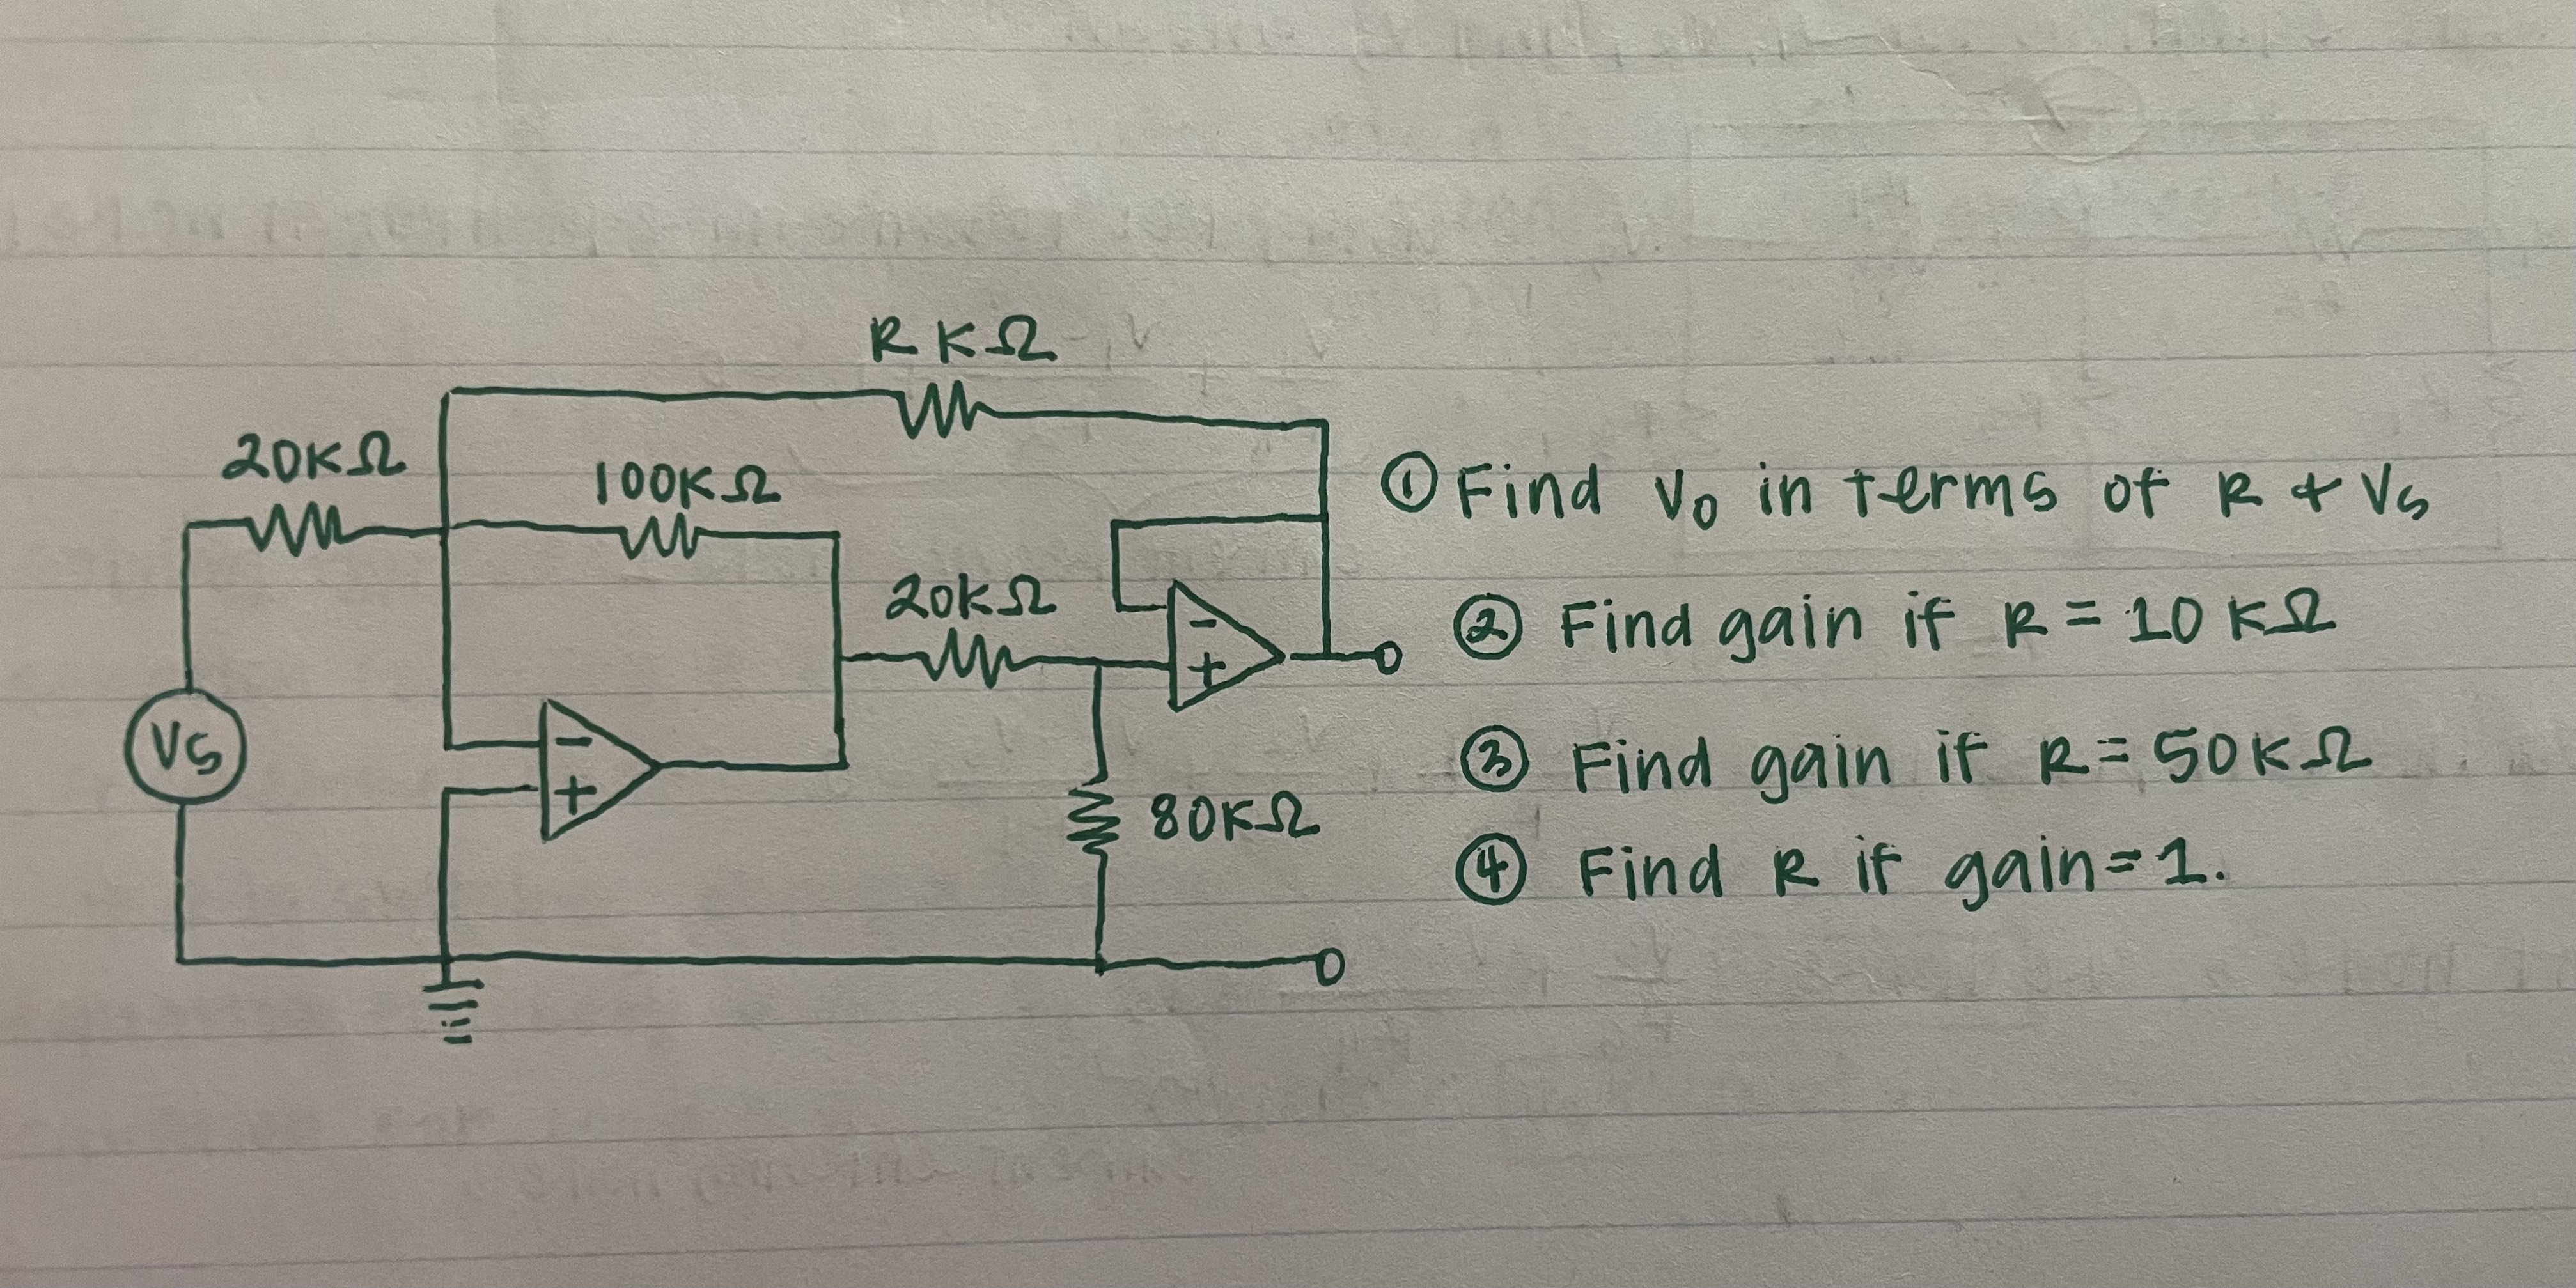 R KΩ
20KΩ
100KΩ
20KΩ
VS
-
+
-
+
80KΩ
① Find Vo in terms of R + Vs
② Find gain if R = 10 KΩ
③ Find gain if R = 50KΩ
④ Find R if gain = 1.